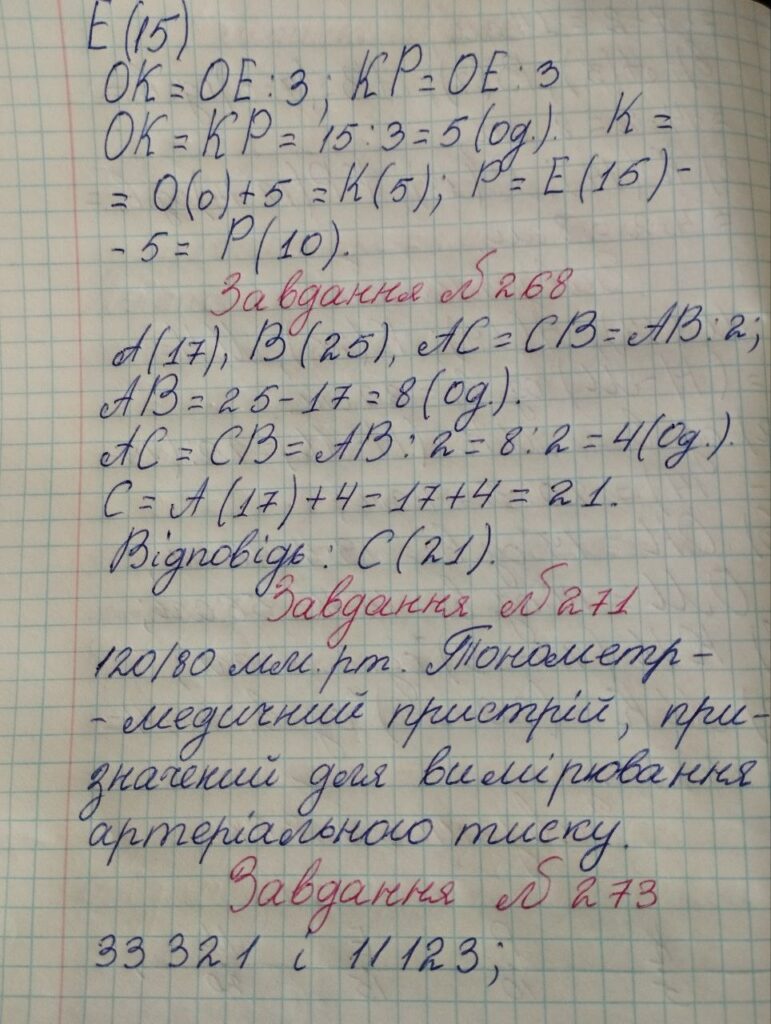 E(15)
OK = OE : 3; KP = OE : 3
OK = KP = 15 : 3 = 5 (од.). K =
= O(0) + 5 = K(5); P = E(15) -
- 5 = P(10).
Завдання № 268
A(17), B(25), AC = CB = AB : 2;
AB = 25 - 17 = 8 (од.).
AC = CB = AB : 2 = 8 : 2 = 4 (од.).
C = A(17) + 4 = 17 + 4 = 21.
Відповідь: C(21).
Завдання № 271
120/80 мм. рт. Тонометр -
- медичний пристрій, при-
значений для вимірювання
артеріального тиску.
Завдання № 273
33 321 і 11123;